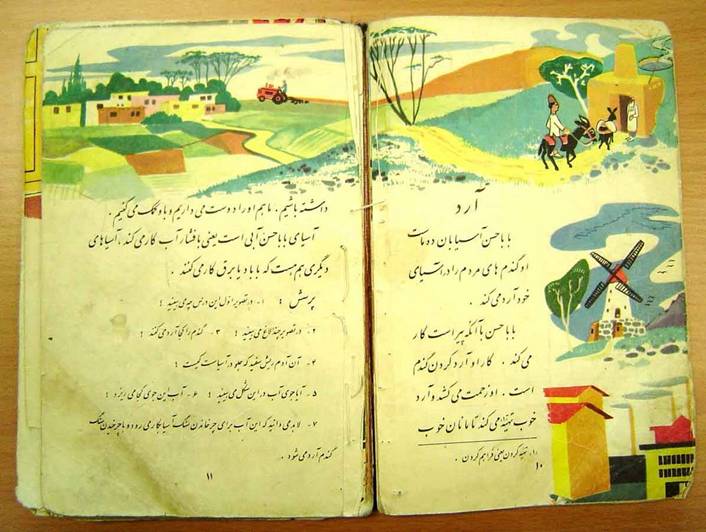 آرد
بابا حسن آسیابان ده ماست
او گندم های مردم را در آسیای
خود آرد می کند .
بابا حسن با آنکه پیر است کار
می کند . کار او آرد کردن گندم
است . او زحمت می کشد و آرد
خوب تهیّه می کند تا ما نان خوب
۱. تهیّه کردن یعنی فراهم کردن .
۱۰
داشته باشیم . ما هم او را دوست می داریم و با او کمک می کنیم .
آسیای بابا حسن آبی است یعنی با فشار آب کار می کند ، آسیاهای
دیگری هم هست که با باد یا برق کار می کنند .
پرسش : ۱. در تصویر اوّل این درس چه می بینید ؟
۲- در تصویر چند الاغ می بینید ؟ ۳- گندم را کی آرد می کند ؟
۴- آن آدم ریش سفید که جلو در آسیاست کیست ؟
۵- آیا جوی آب در این شکل می بینید ؟ ۶- آب این جوی کجا می ریزد ؟
۷- لابد می دانید که این آب برای چرخاندن سنگ آسیا بکار می رود و با چرخیدن سنگ
گندم آرد می شود .
۱۱